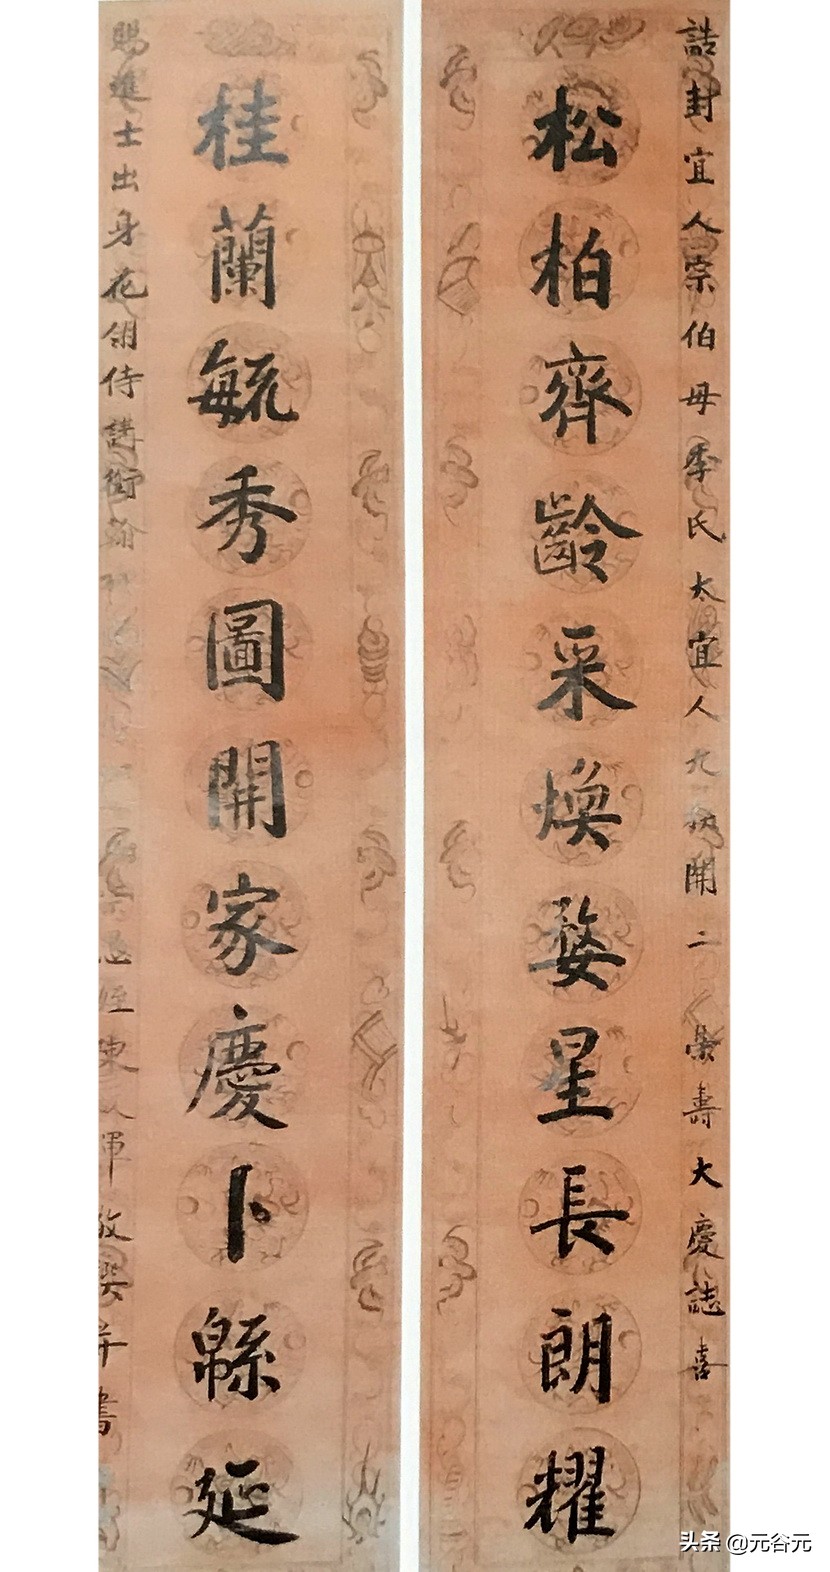 誥封宜人宗伯母季氏太宜人九秩開二榮壽大慶誌喜
松柏齊齡采煥婺星長朗耀
桂蘭毓秀圖開家慶卜緜延
賜進士出身花翎侍講銜翰
愚姪陳
軍敬撰并書
头条 @元谷元